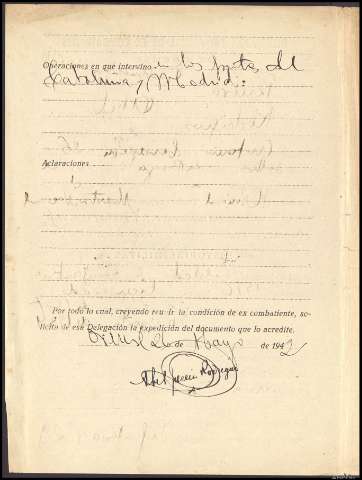 Operaciones en que intervino en los frentes del
Cataluña y Madrid.
Aclaraciones
Por todo lo cual, creyendo reunir la condición de ex combatiente, so-
licita de esa Delegación la expedición del documento que lo acredite.
26 de Mayo de 1942
Abel Rodriguez